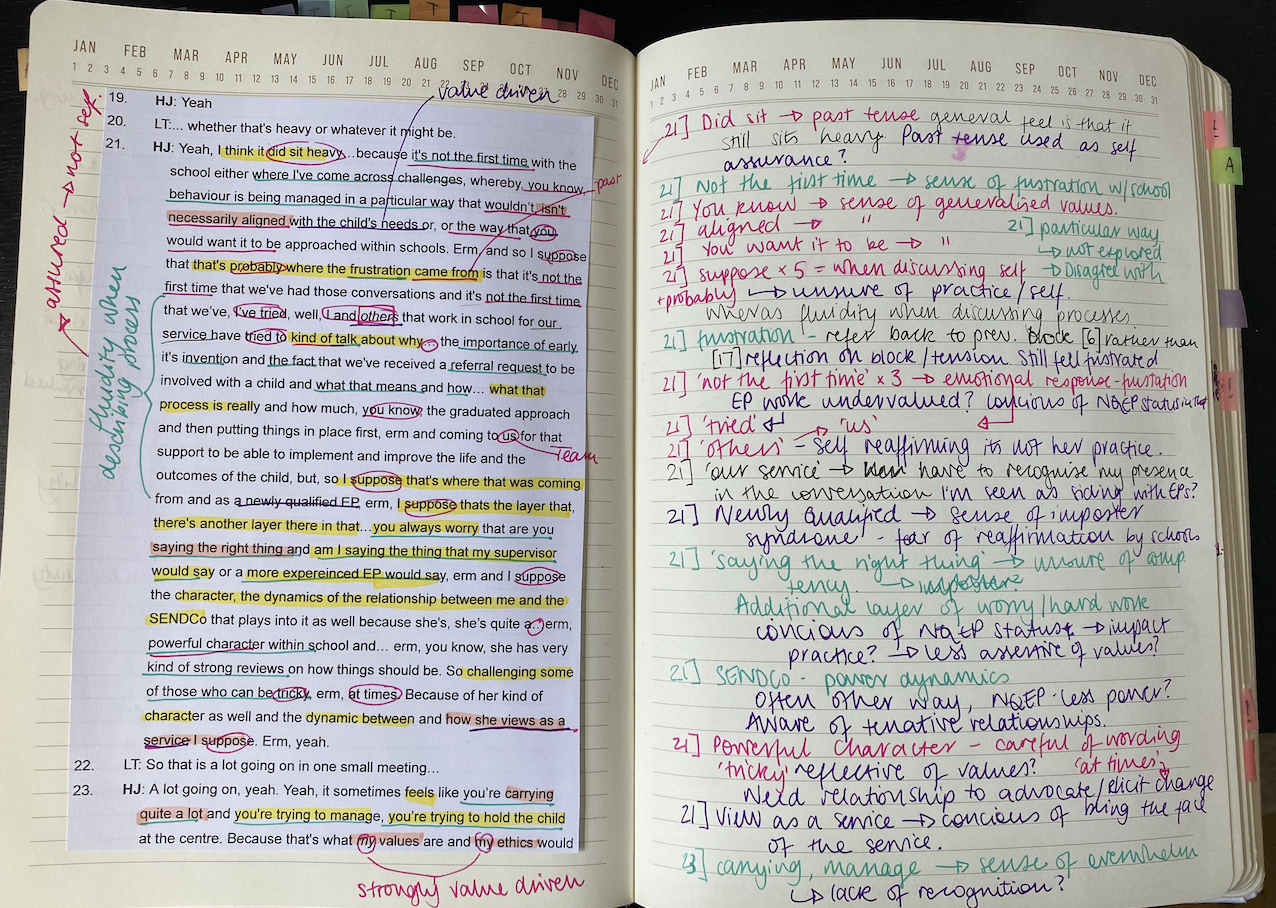 JAN FEB MAR APR MAY JUN JUL AUG SEP OCT NOV DEC
1 2 3 4 5 6 7 8 9 10 11 12 13 14 15 16 17 18 19 20 21 22 23 24 25 26 27 28 29 30 31
value driven
19. HJ: Yeah
20. LT:... whether that's heavy or whatever it might be.
21. HJ: Yeah, I think it did sit heavy...because it's not the first time with the
school either where I've come across challenges, whereby, you know,
past
behaviour is being managed in a particular way that wouldn't, isn't
necessarily aligned with the child's needs or, or the way that you
would want it to be approached within schools. Erm, and so I suppose
that that's probably where the frustration came from is that it's not the
first time that we've had those conversations and it's not the first time
that we've, I've tried, well, I and others that work in school for our
service have tried to kind of talk about why... the importance of early
it's invention and the fact that we've received a referral request to be
involved with a child and what that means and how... what that
process is really and how much, you know, the graduated approach
and then putting things in place first, erm and coming to us for that
Team
support to be able to implement and improve the life and the
outcomes of the child, but, so I suppose that's where that was coming
from and as a newly qualified EP, erm, I suppose thats the layer that,
there's another layer there in that... you always worry that are you
saying the right thing and am I saying the thing that my supervisor
would say or a more expereinced EP would say, erm and I suppose
the character, the dynamics of the relationship between me and the
SENDCo that plays into it as well because she's, she's quite a... erm,
powerful character within school and... erm, you know, she has very
kind of strong reviews on how things should be. So challenging some
of those who can be tricky, erm, at times. Because of her kind of
character as well and the dynamic between and how she views as a
service I suppose. Erm, yeah.
22. LT: So that is a lot going on in one small meeting...
23. HJ: A lot going on, yeah. Yeah, it sometimes feels like you're carrying
quite a lot and you're trying to manage, you're trying to hold the child
at the centre. Because that's what my values are and my ethics would
strongly value driven
assured → not self
fluidity when
describing process
JAN FEB MAR APR MAY JUN JUL AUG SEP OCT NOV DEC
1 2 3 4 5 6 7 8 9 10 11 12 13 14 15 16 17 18 19 20 21 22 23 24 25 26 27 28 29 30 31
21] Did sit → past tense general feel is that it
still sits heavy Past tense used as self
assurance?
21] Not the first time → sense of frustration w/school
21] You know → sense of generalised values.
21] aligned → "
21] particular way
21] You want it to be → "
→ not explored
21] suppose x 5 = when discussing self
→ Disagree with
+probably → unsure of practice/self.
Wheras fluidity when discussing processes
21] frustration - refer back to prev. block [6] rather than
[17] reflection on block/tension. Still fell frustrated
21] 'not the first time' x 3 → emotional response - frustation
EP work undervalued? concious of NQEP status in that
21] 'tried' 'us'
21] 'others' - self reaffirming its not her practice.
21] 'our service' → have to recognise my presence
in the conversation I'm seen as siding with EPs?
21] Newly Qualified → sense of imposter
syndrome - fear of reaffirmation by schools
21] 'saying the right thing' → unsure of comp
tency. → imposter?
Additional layer of worry/hard work
concious of NQEP status → impact
practice? → less assertive of values?
21] SENDCo - power dynamics
Often other way, NQEP less power?
Aware of tenative relationships.
21] Powerful Character - careful of wording
'tricky' reflective of values? 'at times'
Need relationship to advocate/elicit change
21] View as a service → concious of being the face
of the service.
23] carrying, manage → sense of overwhelm
↳ lack of recognition?
A